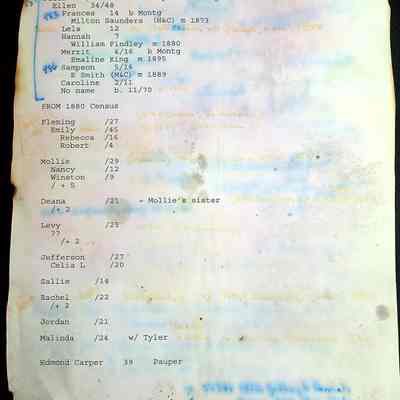 Ellen 34/48
Frances 14 b Montg
Milton Saunders (H&C) m 1873
Lela 12
Hannah 7
William Findley m 1880
Merrit 4/16 b Montg
Emaline King m 1895
Sampson 5/16
E Smith (M&C) m 1889
Caroline 2/11
No name b. 11/70
FROM 1880 Census
Fleming /27
Emily /45
Rebecca /16
Robert /4
Mollie /29
Nancy /12
Winston /9
/ + 5
Deana /21 - Mollie's sister
/+ 2
Levy /25
??
/+ 2
Jefferson /27
Celia L /20
Sallie /14
Rachel /22
/+ 2
Jordan /21
Malinda /24 w/ Tyler
Edmond Carper 39 Pauper